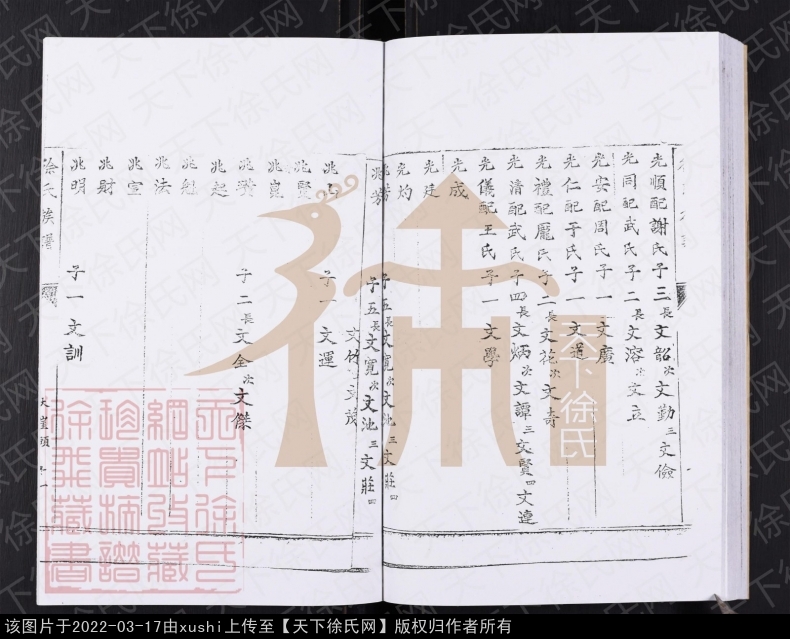 光順配謝氏子三長文韶次文勤三文儉
光同配武氏子二長文溶次文立
光安配周氏子一文廣
光仁配于氏子一文道
光禮配龐氏子二長文花次文奇
光清配武氏子四長文炳次文譚三文賢四文連
光儀配王氏子一文學
光成
光廷
光灼
兆芳子五長文寬次文池三文莊四
兆芳子五長文寬次文池三文莊四
文竹 文茂
子一文運
兆賢
兆崑
兆瓚
兆起子二長文全次文傑
兆魁
兆法
兆宣
兆財
兆明子一文訓
徐氏族譜
天下徐氏
天下徐氏網站收藏珍貴族譜徐氏藏書
天下徐氏网
该图片于2022-03-17由xushi上传至【天下徐氏网】版权归作者所有